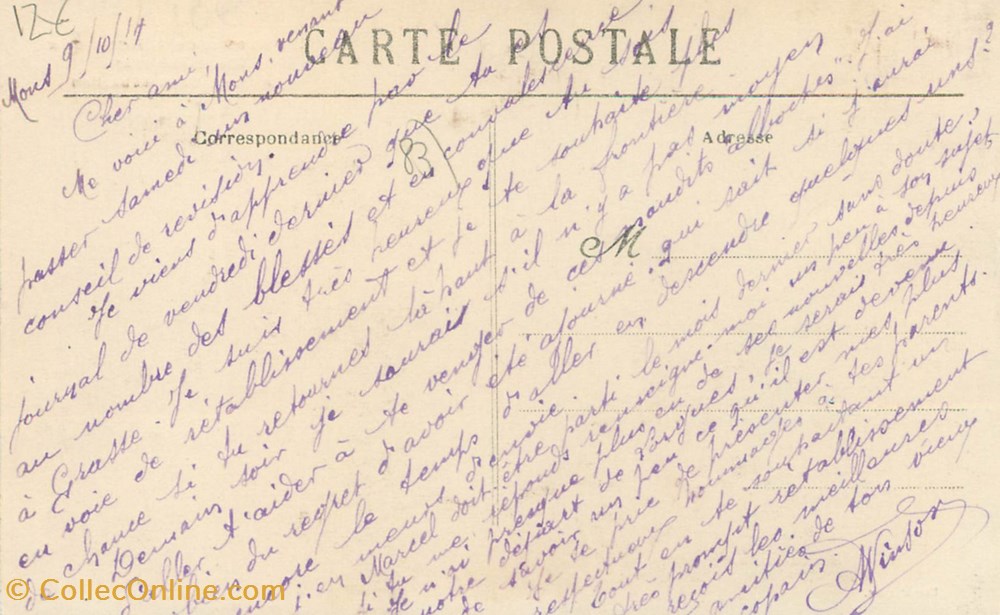 12€
Mons 9/10/14
CARTE POSTALE
Correspondance
Adresse
83
M
Cher ami,
Me voici à Mons, venant
passer samedi un nouveau
conseil de revision.
Je viens d'apprendre par le
journal de vendredi dernier que tu es
au nombre des blessés et en convalescence
à Grasse. Je suis très heureux que tu sois
en voie de rétablissement et je te souhaite plus
de chance si tu retournes là haut à la frontière.
Demain soir je saurais s'il n'y a pas moyen
d'aller t'aider à te venger de ces maudits alboches". J'ai
du regret d'avoir été ajourné. Qui sait si j'aurai
encore le temps d'aller en descendre quelques uns?
meurs d'envie.
Marcel doit être parti le mois dernier sans doute,
si tu me réponds renseigne-moi un peu à son sujet
Je n'ai presque plus eu de ses nouvelles depuis
notre départ de Bruges, je serais très heureux
de savoir un peu ce qu'il est devenu.
Je te prie de présenter mes plus
respectueux hommages à tes parents.
Tout en te souhaitant un
très prompt rétablissement
reçois les meilleures
amitiés de ton vieux
copain.
© CollecOnline.com